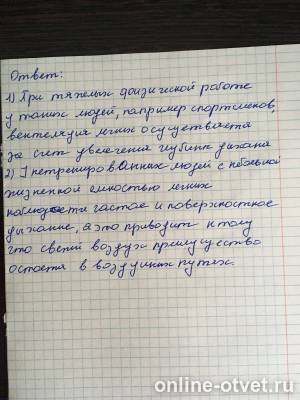 Ответ:
1) При тяжелых физической работе
у таких людей, например спортсменов,
вентиляция легких осуществляется
за счет увелечения глубины дыхания
2) У нетренированных людей с небольшой
жизненной емкостью легких
наблюдается частое и поверхностное
дыхание, а это приводит к тому
что свежий воздух преимущество
остается в воздушных путях.
online-otvet.ru